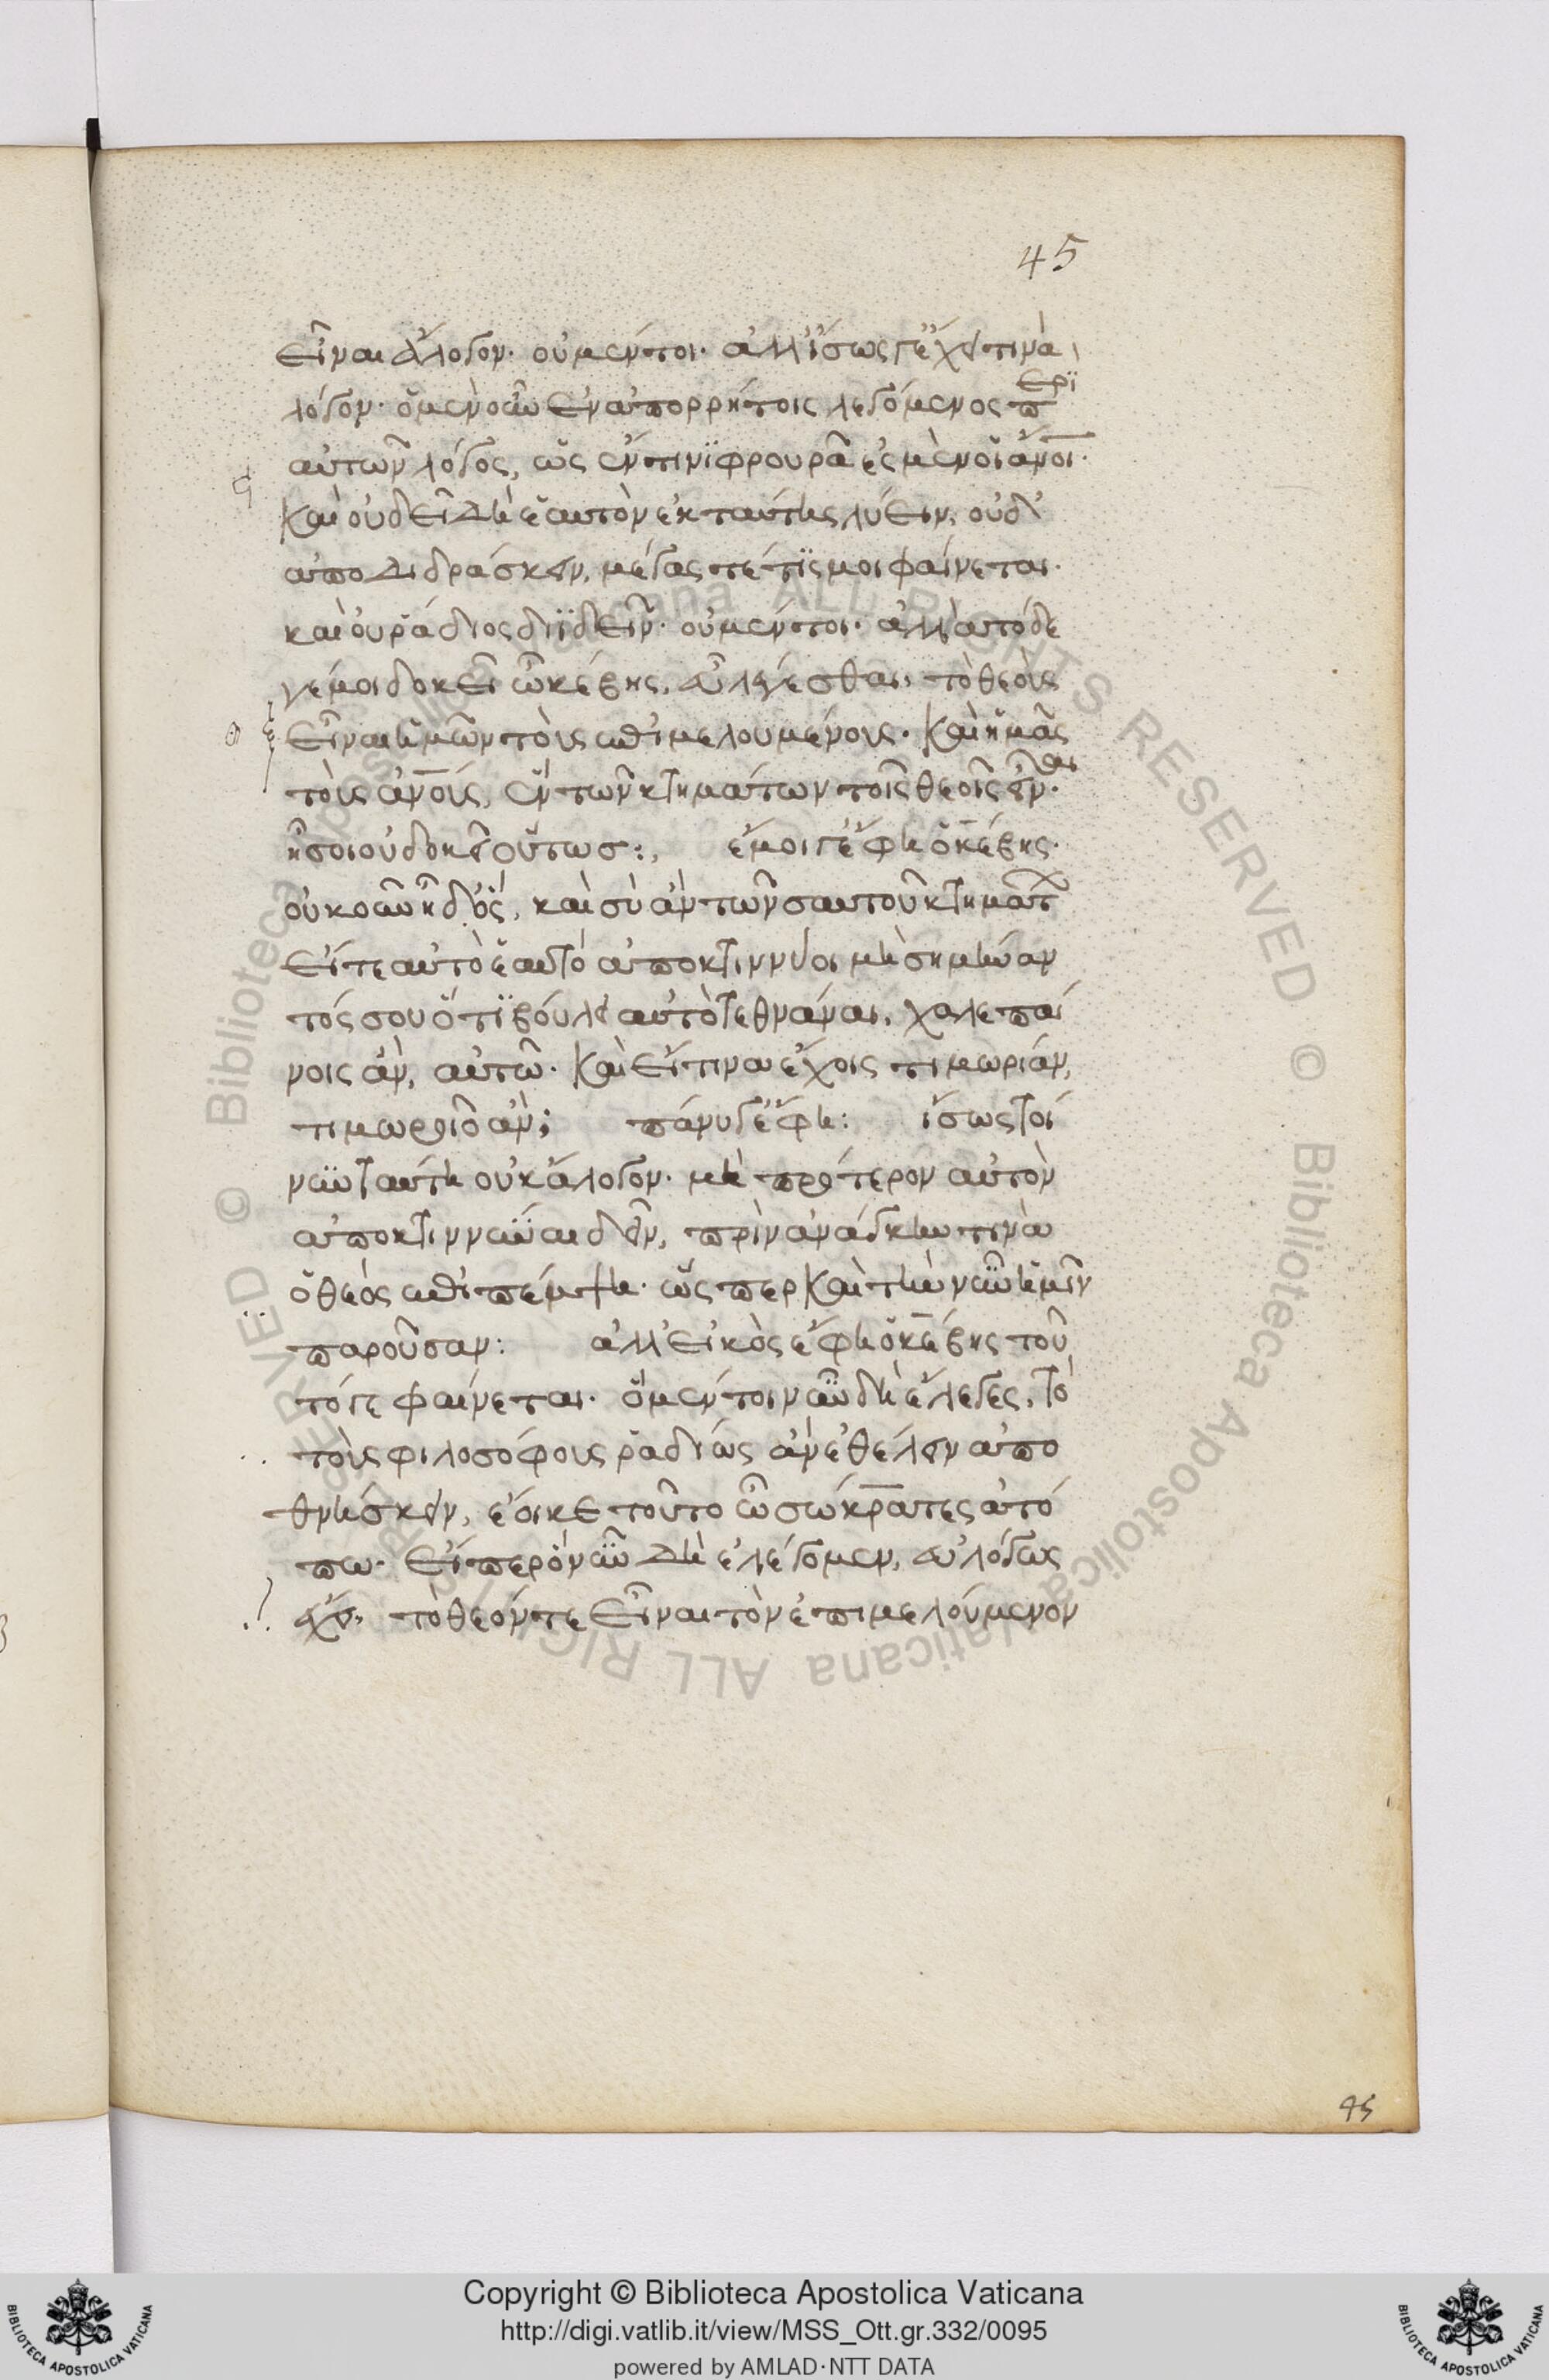 45
εἶναι ἄλογον· οὐ μέντοι· ἀλλ' ἴσως γ' ἔχει τινὰ
λόγον· ὁ μὲν οὖν ἐν ἀπορρήτοις λεγόμενος περὶ
αὐτῶν λόγος, ὡς ἔν τινι φρουρᾶ ἐσμὲν οἱ ἄνοι·
καὶ οὐ δεῖ δὴ ἑαυτὸν ἐκ ταύτης λύειν, οὐδ'
ἀποδιδράσκειν, μέγας τέ τίς μοι φαίνεται·
καὶ οὐ ῥάδιος διιδεῖν· οὐ μέντοι· ἀλλὰ τόδε
γέ μοι δοκεῖ ὦ κέβης, εὖ λέγεσθαι, τὸ θεοὺς
εἶναι ἡμῶν τοὺς ἐπιμελουμένους· καὶ ἡμᾶς
τοὺς ἀνους, ἓν τῶν κτημάτων τοῖς θεοῖς εἶναι·
ἢ σοι οὐ δοκεῖ οὕτωσ:, ἔμοιγ' ἔφη ὁ κέβης·
οὐκοῦν ἢ δ' ὅς, καὶ σὺ ἂν τῶν σαυτοῦ κτημάτων
εἴ τε αὐτὸ ἑαυτὸ ἀποκτιννύοι μὴ σημήναν
τός σου ὅτι βούλει αὐτὸ τεθνάναι, χαλεπαί
νοις ἂν, αὐτῶ· καὶ εἴ τινα ἔχοις τιμωρίαν,
τιμωροῖο ἄν; πάνυ γ' ἔφη: ἴσως τοί
νυν ταύτη οὐκ ἄλογον· μὴ πρότερον αὐτὸν
ἀποκτιννύναι δεῖν, πρὶν ἀνάγκην τινὰ
ὁ θεὸς ἐπιπέμψη· ὥσπερ καὶ τὴν νῦν ἡμῖν
παροῦσαν: ἀλλ' εἰκὸς ἔφη ὁ κέβης τοῦ
τό γε φαίνεται· ὃ μέντοι νῦν δὴ ἔλεγες, τὸ
τοὺς φιλοσόφους ῥαδίως ἂν ἐθέλειν ἀπο
θνήσκειν, ἔοικε τοῦτο ὦ σώκρατες ἀτό
πω· εἴπερ ὃ νῦν δὴ ἐλέγομεν, εὐλόγως
ἔχει, τὸ θεόν τε εἶναι τὸν ἐπιμελούμενον
45
Copyright © Biblioteca Apostolica Vaticana
http://digi.vatlib.it/view/MSS_Ott.gr.332/0095
powered by AMLAD·NTT DATA